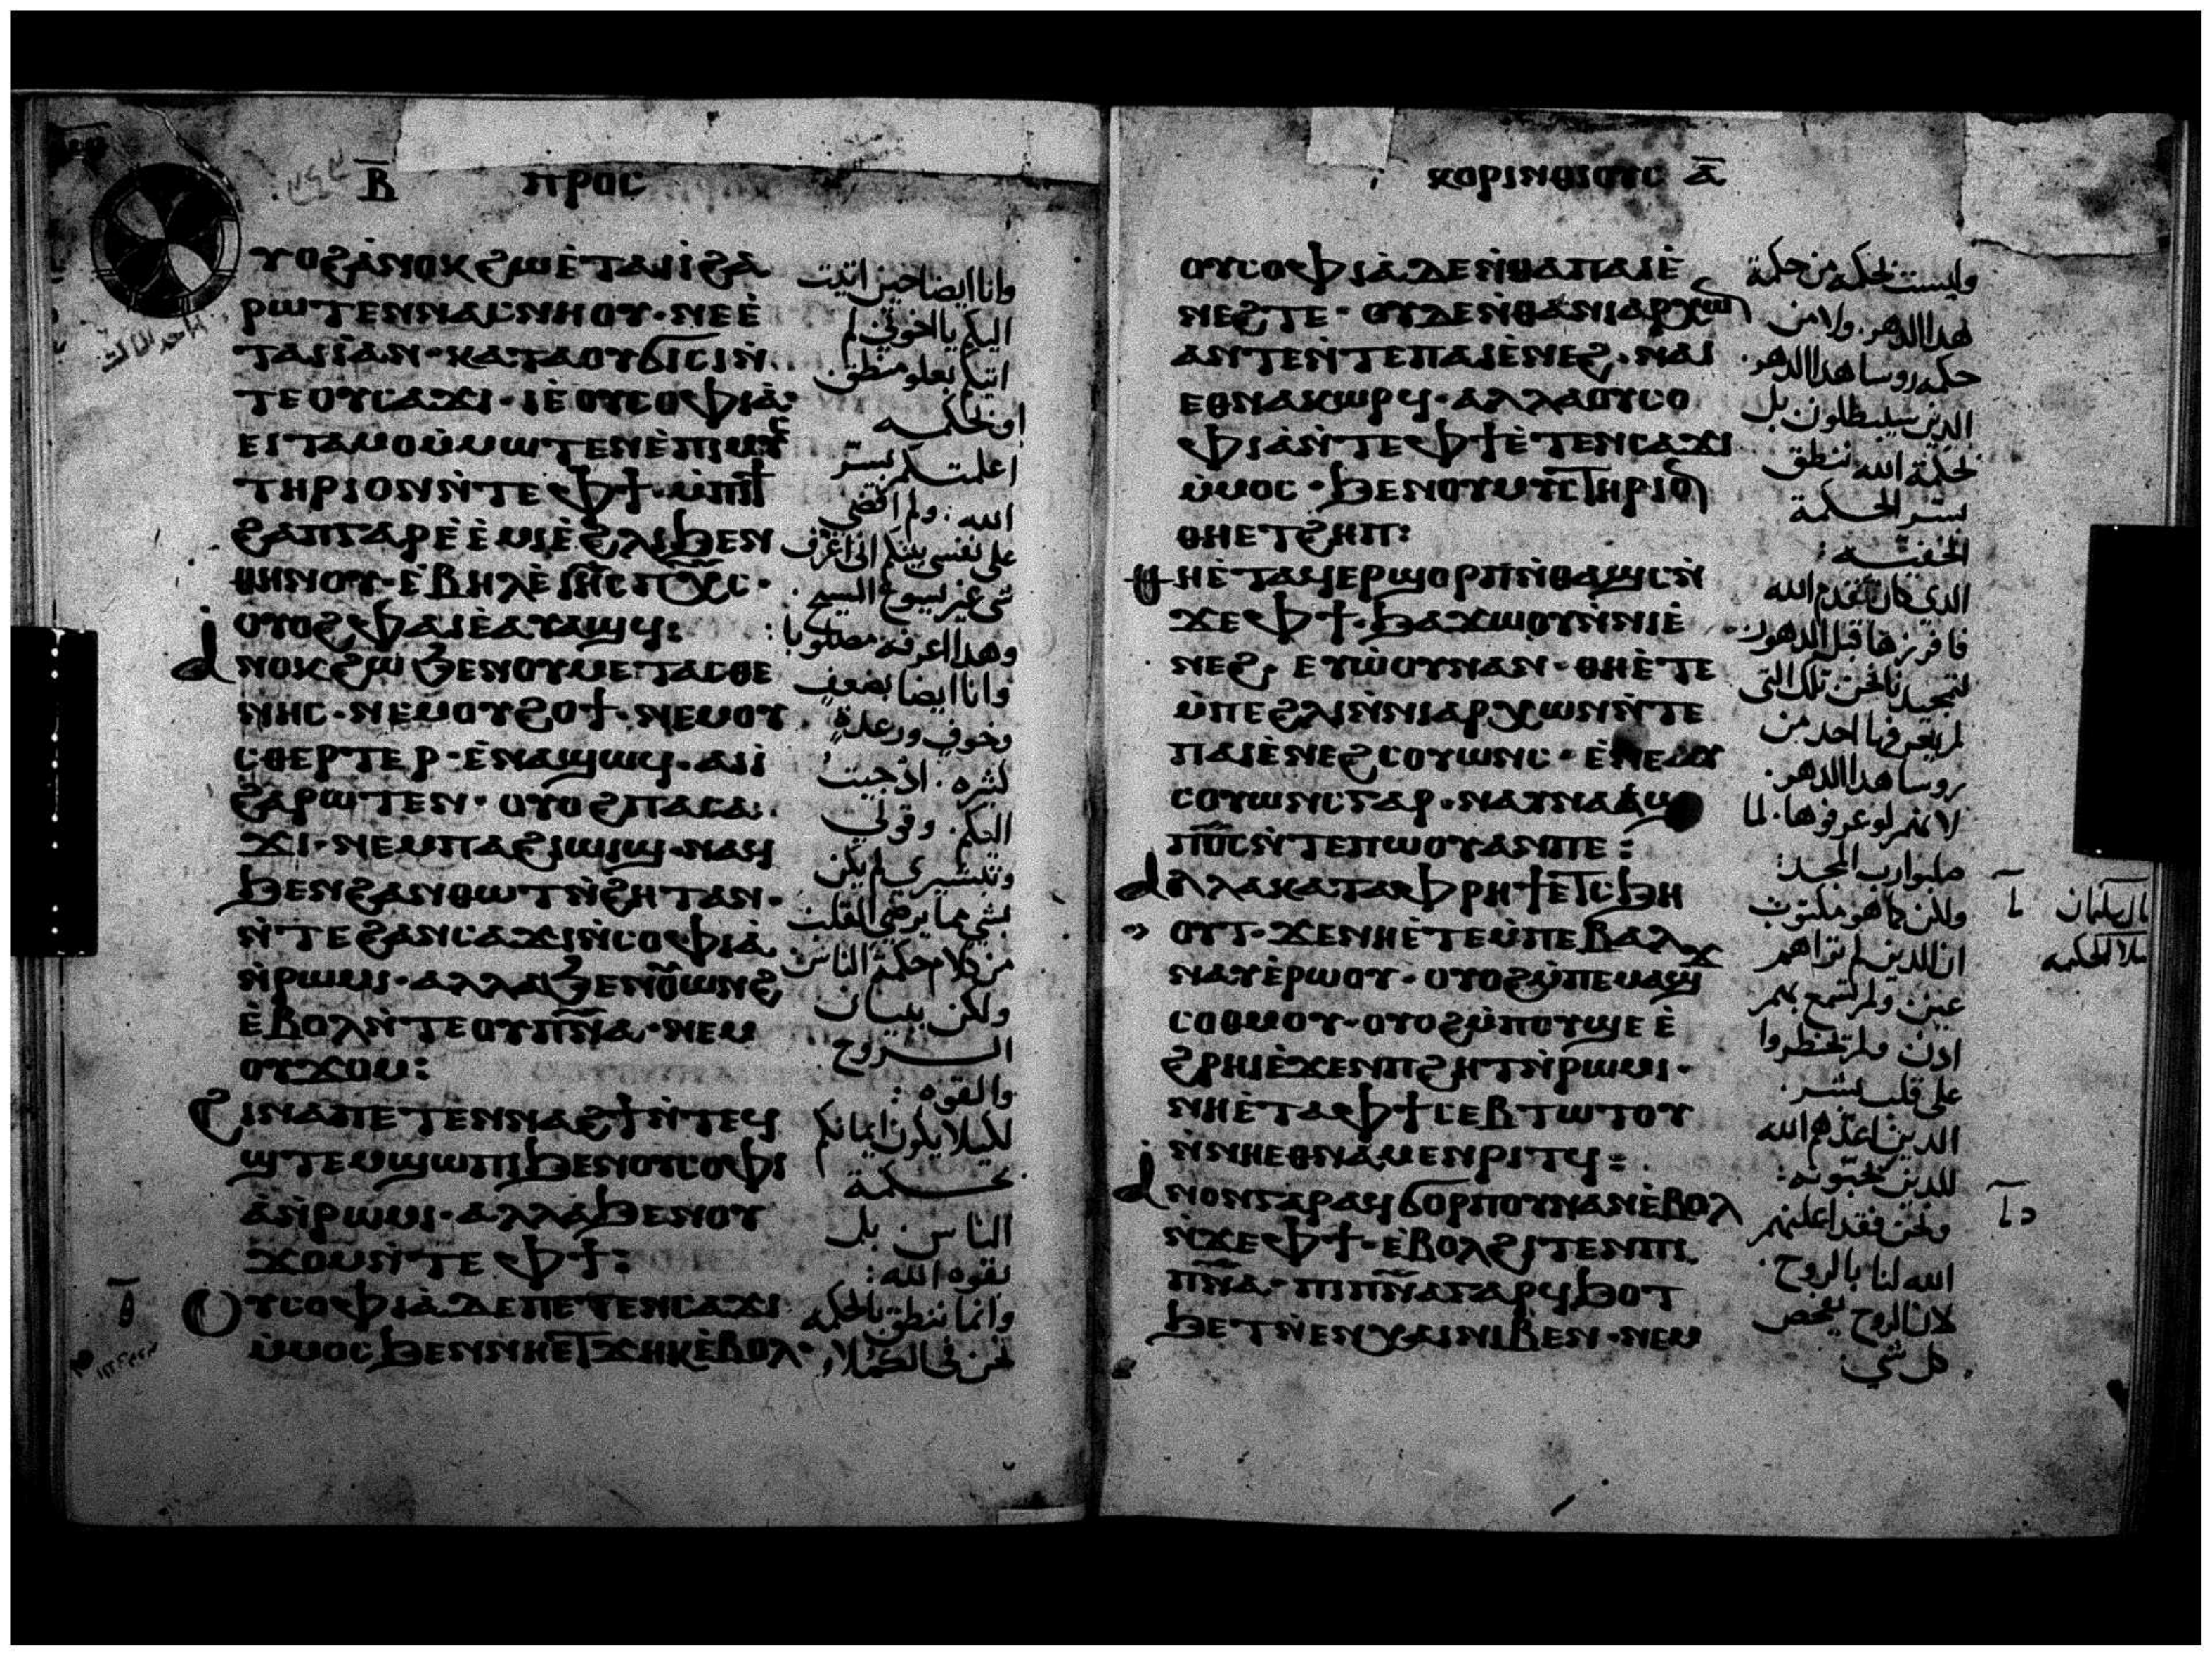 Ⲃ̅ ⲡⲣⲟⲥ
ⲩⲟϩⲁ̀ⲛⲟⲕϩⲱⲉ̀ⲧⲁⲓⲓ̀ϩⲁ
ⲣⲱⲧⲉⲛⲛⲁⲥⲛⲏⲟⲩ·ⲛⲉⲉ̀
ⲧⲁⲓⲓ̀ⲁⲛ·ⲕⲁⲧⲁⲟⲩϭⲓⲥⲓⲛ̀
ⲧⲉⲟⲩⲥⲁϫⲓ·ⲓⲉⲟⲩⲥⲟⲫⲓⲁ̀·
ⲉⲓⲧⲁⲙⲟⲙ̀ⲙⲱⲧⲉⲛⲉ̀ⲡⲓⲙⲩⲥ
ⲧⲏⲣⲓⲟⲛⲛ̀ⲧⲉⲫϯ·ⲙ̀ⲡⲓϯ
ϩⲁⲡⲅⲁⲣⲉ̀ⲉ̀ⲙⲓⲉ̀ϩⲗⲓϧⲉⲛ
ⲑⲏⲛⲟⲩ·ⲉ̀ⲃⲏⲗⲉ̀ⲓⲏ̅ⲥⲡⲭ̅ⲥ·
ⲟⲩⲟϩⲫⲁⲓⲉ̀ⲁⲩⲁϣϥ:
ⲁ̀ⲛⲟⲕϩⲱϧⲉⲛⲟⲩⲙⲉⲧⲁⲥⲑⲉ
ⲛⲏⲥ·ⲛⲉⲙⲟⲩϩⲟϯ·ⲛⲉⲙⲟⲩ
ⲥⲑⲉⲣⲧⲉⲣ·ⲉ̀ⲛⲁϣⲱϥ·ⲁⲓⲓ̀
ϩⲁⲣⲱⲧⲉⲛ·ⲟⲩⲟϩⲡⲁⲥⲁ
ϫⲓ·ⲛⲉⲙⲡⲁϩⲓⲱⲓϣ·ⲛⲁϥ
ϧⲉⲛϩⲁⲛⲑⲱⲧⲛ̀ϩⲏⲧⲁⲛ·
ⲛ̀ⲧⲉϩⲁⲛⲥⲁϫⲓⲛ̀ⲥⲟⲫⲓⲁ̀
ⲛ̀ⲣⲱⲙⲓ·ⲁⲗⲗⲁϧⲉⲛⲟⲩ̅ⲱⲛϩ
ⲉ̀ⲃⲟⲗⲛ̀ⲧⲉⲟⲩⲡ̅ⲛ̅ⲁ·ⲛⲉⲙ
ⲟⲩϫⲟⲙ:
ϩⲓⲛⲁⲡⲉⲧⲉⲛⲛⲁϩϯⲛ̀ⲧⲉϥ
ϣⲧⲉⲙϣⲱⲡⲓϧⲉⲛⲟⲩⲥⲟⲫⲓ
ⲁ̀ⲛ̀ⲣⲱⲙⲓ·ⲁⲗⲗⲁϧⲉⲛⲟⲩ
ϫⲟⲙⲛ̀ⲧⲉⲫϯ:
ⲟⲩⲥⲟⲫⲓⲁ̀ⲇⲉⲡⲉⲧⲉⲛⲥⲁϫⲓ
ⲙ̀ⲙⲟⲥϧⲉⲛⲛⲏⲉⲧϫⲏⲕⲉ̀ⲃⲟⲗ·
وانا ايضا حين اتيت
اليكم يا اخوتي لم
اتيكم بعلو منطق
او بحكمه
اعلمتكم بسر
الله. ولم اقضي
على نفسي بينكم اني اعرف
شي غير يسوع المسيح.
وهذا اعرفه مصلوبا:
وانا ايضا بضعف
وخوف ورعدة
كثيره. اذ جيت
اليكم. وقولي
وتبشيري لم يكن
بشي مما يرضي القلب
من كلام حكمة الناس
ولكن ببيان
الروح
والقوه:
لكيلا يكون ايمانكم
بحكمة
الناس بل
بقوه الله:
وانما ننطق بالحكمه
نحن في الكملا.
ⲕⲟⲣⲓⲛⲑⲓⲟⲩⲥ ⲁ̅
ⲟⲩⲥⲟⲫⲓⲁ̀ⲇⲉⲛ̀ⲑⲁⲡⲁⲓⲉ̀
ⲛⲉϩⲧⲉ·ⲟⲩⲇⲉⲛ̀ⲑⲁⲛⲓⲁⲣⲭⲱⲛ
ⲁⲛⲧⲉⲛ̀ⲧⲉⲡⲁⲓⲉ̀ⲛⲉϩ·ⲛⲁⲓ
ⲉⲑⲛⲁⲕⲱⲣϥ·ⲁⲗⲗⲁⲟⲩⲥⲟ
ⲫⲓⲁ̀ⲛ̀ⲧⲉⲫϯⲉ̀ⲧⲉⲛⲥⲁϫⲓ
ⲙ̀ⲙⲟⲥ·ϧⲉⲛⲟⲩⲙⲩⲥⲧⲏⲣⲓⲟⲛ
ⲑⲏⲉⲧϩⲏⲡ:
ⲑⲏⲉ̀ⲧⲁϥⲉⲣϣⲟⲣⲡⲛ̀ⲑⲁϣⲥⲛ̀
ϫⲉⲫϯ·ϧⲁϫⲱⲟⲩⲛ̀ⲛⲓⲉ̀
ⲛⲉϩ, ⲉⲩⲱ̀ⲟⲩⲛⲁⲛ·ⲑⲏⲉ̀ⲧⲉ
ⲙ̀ⲡⲉϩⲗⲓⲛ̀ⲛⲓⲁⲣⲭⲱⲛⲛ̀ⲧⲉ
ⲡⲁⲓⲉ̀ⲛⲉϩⲥⲟⲩⲱⲛⲥ·ⲉ̀ⲛⲉⲁⲩ
ⲥⲟⲩⲱⲛⲥⲅⲁⲣ·ⲛⲁⲩⲛⲁⲁϣ
ⲡⲟ̅ⲥ̅ⲛ̀ⲧⲉⲡⲱⲟⲩⲁⲛⲡⲉ:
ⲁⲗⲗⲁⲕⲁⲧⲁⲫⲣⲏϯⲉⲧⲥϧⲏ
ⲟⲩⲧ·ϫⲉⲛⲏⲉ̀ⲧⲉⲙ̀ⲡⲉⲃⲁⲗ
ⲛⲁⲩⲉ̀ⲣⲱⲟⲩ·ⲟⲩⲟϩⲙ̀ⲡⲉⲙⲁϣϫ
ⲥⲟⲑⲙⲟⲩ·ⲟⲩⲟϩⲙ̀ⲡⲟⲩϣⲉⲉ̀
ϩⲣⲏⲓⲉ̀ϫⲉⲛⲡϩⲏⲧⲛ̀ⲣⲱⲙⲓ·
ⲛⲏⲉ̀ⲧⲁⲫϯⲥⲉⲃⲧⲱⲧⲟⲩ
ⲛ̀ⲛⲏⲉⲑⲛⲁⲙⲉⲛⲣⲓⲧϥ:
ⲁ̀ⲛⲟⲛⲅⲁⲣⲁϥϭⲟⲣⲡⲟⲩⲛⲁⲛⲉ̀ⲃⲟⲗ
ⲛ̀ϫⲉⲫϯ·ⲉ̀ⲃⲟⲗϩⲓⲧⲉⲛⲡⲓ
ⲡ̅ⲛ̅ⲁ·ⲡⲓⲡ̅ⲛ̅ⲁⲅⲁⲣϥϧⲟⲧ
ϧⲉⲧⲛ̀ⲉⲛⲭⲁⲓⲛⲓⲃⲉⲛ·ⲛⲉⲙ
وليست بحكمه من حكمة
هذا الدهر. ولا من
حكمه روسا هذا الدهر.
الذين سيبطلون بل
بحكمة الله ننطق
بسر الحكمة
الخفيه:
الذي كان تقدم الله
فافرزها قبل الدهور
لتمجيدنا نحن تلك التي
لم يعرفها احد من
روسا هذا الدهر.
لانهم لو عرفوها. لما
صلبوا رب المجد:
ولكن كما هو مكتوب
ان الذين لم تراهم
عين ولم تسمع بهم
اذن ولم تخطروا
على قلب بشر.
الذين اعدهم الله
للذين يحبونه:
ونحن فقد اعلنهم
الله لنا بالروح.
لان الروح يفحص
كل شي